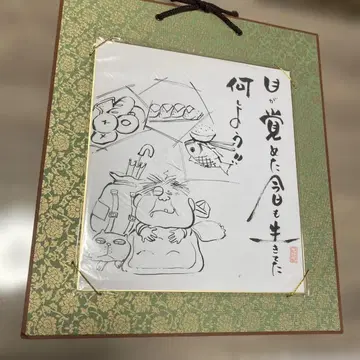 目が覚めた今日も生きてた
何しよう!!